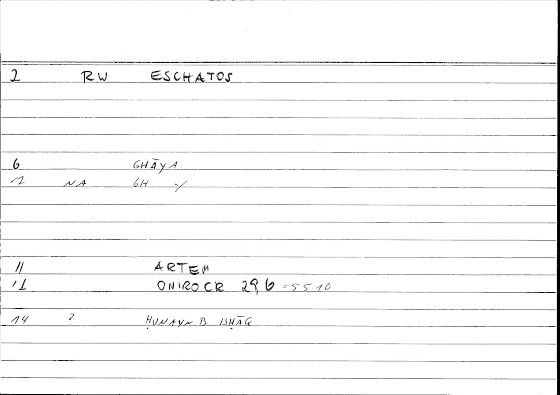 2 RW ESCHATOS
6 GHĀYA
NA GH
11 ARTEM
ONIROCR 29,6 = 55 10
14 ? ḤUNAYN B ISḤĀQ